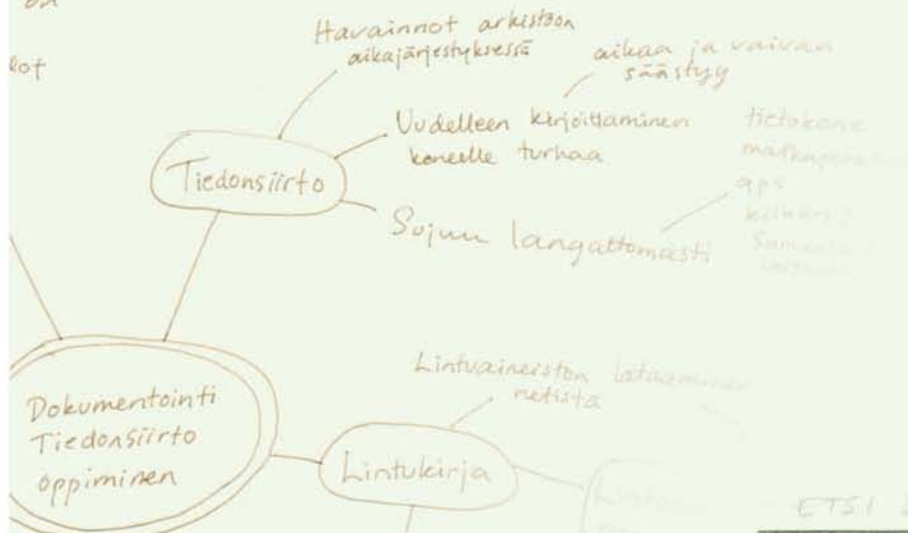 on
Havainnot arkistoon
aikajärjestyksessä
aikaa ja vaivaa
säästyy
Uudelleen kirjoittaminen
koneelle turhaa
Tiedonsiirto
Sujuu langattomasti
tietokone
gps
Dokumentointi
Tiedonsiirto
oppiminen
Lintuaineiston lataaminen
netistä
Lintukirja
ETSI